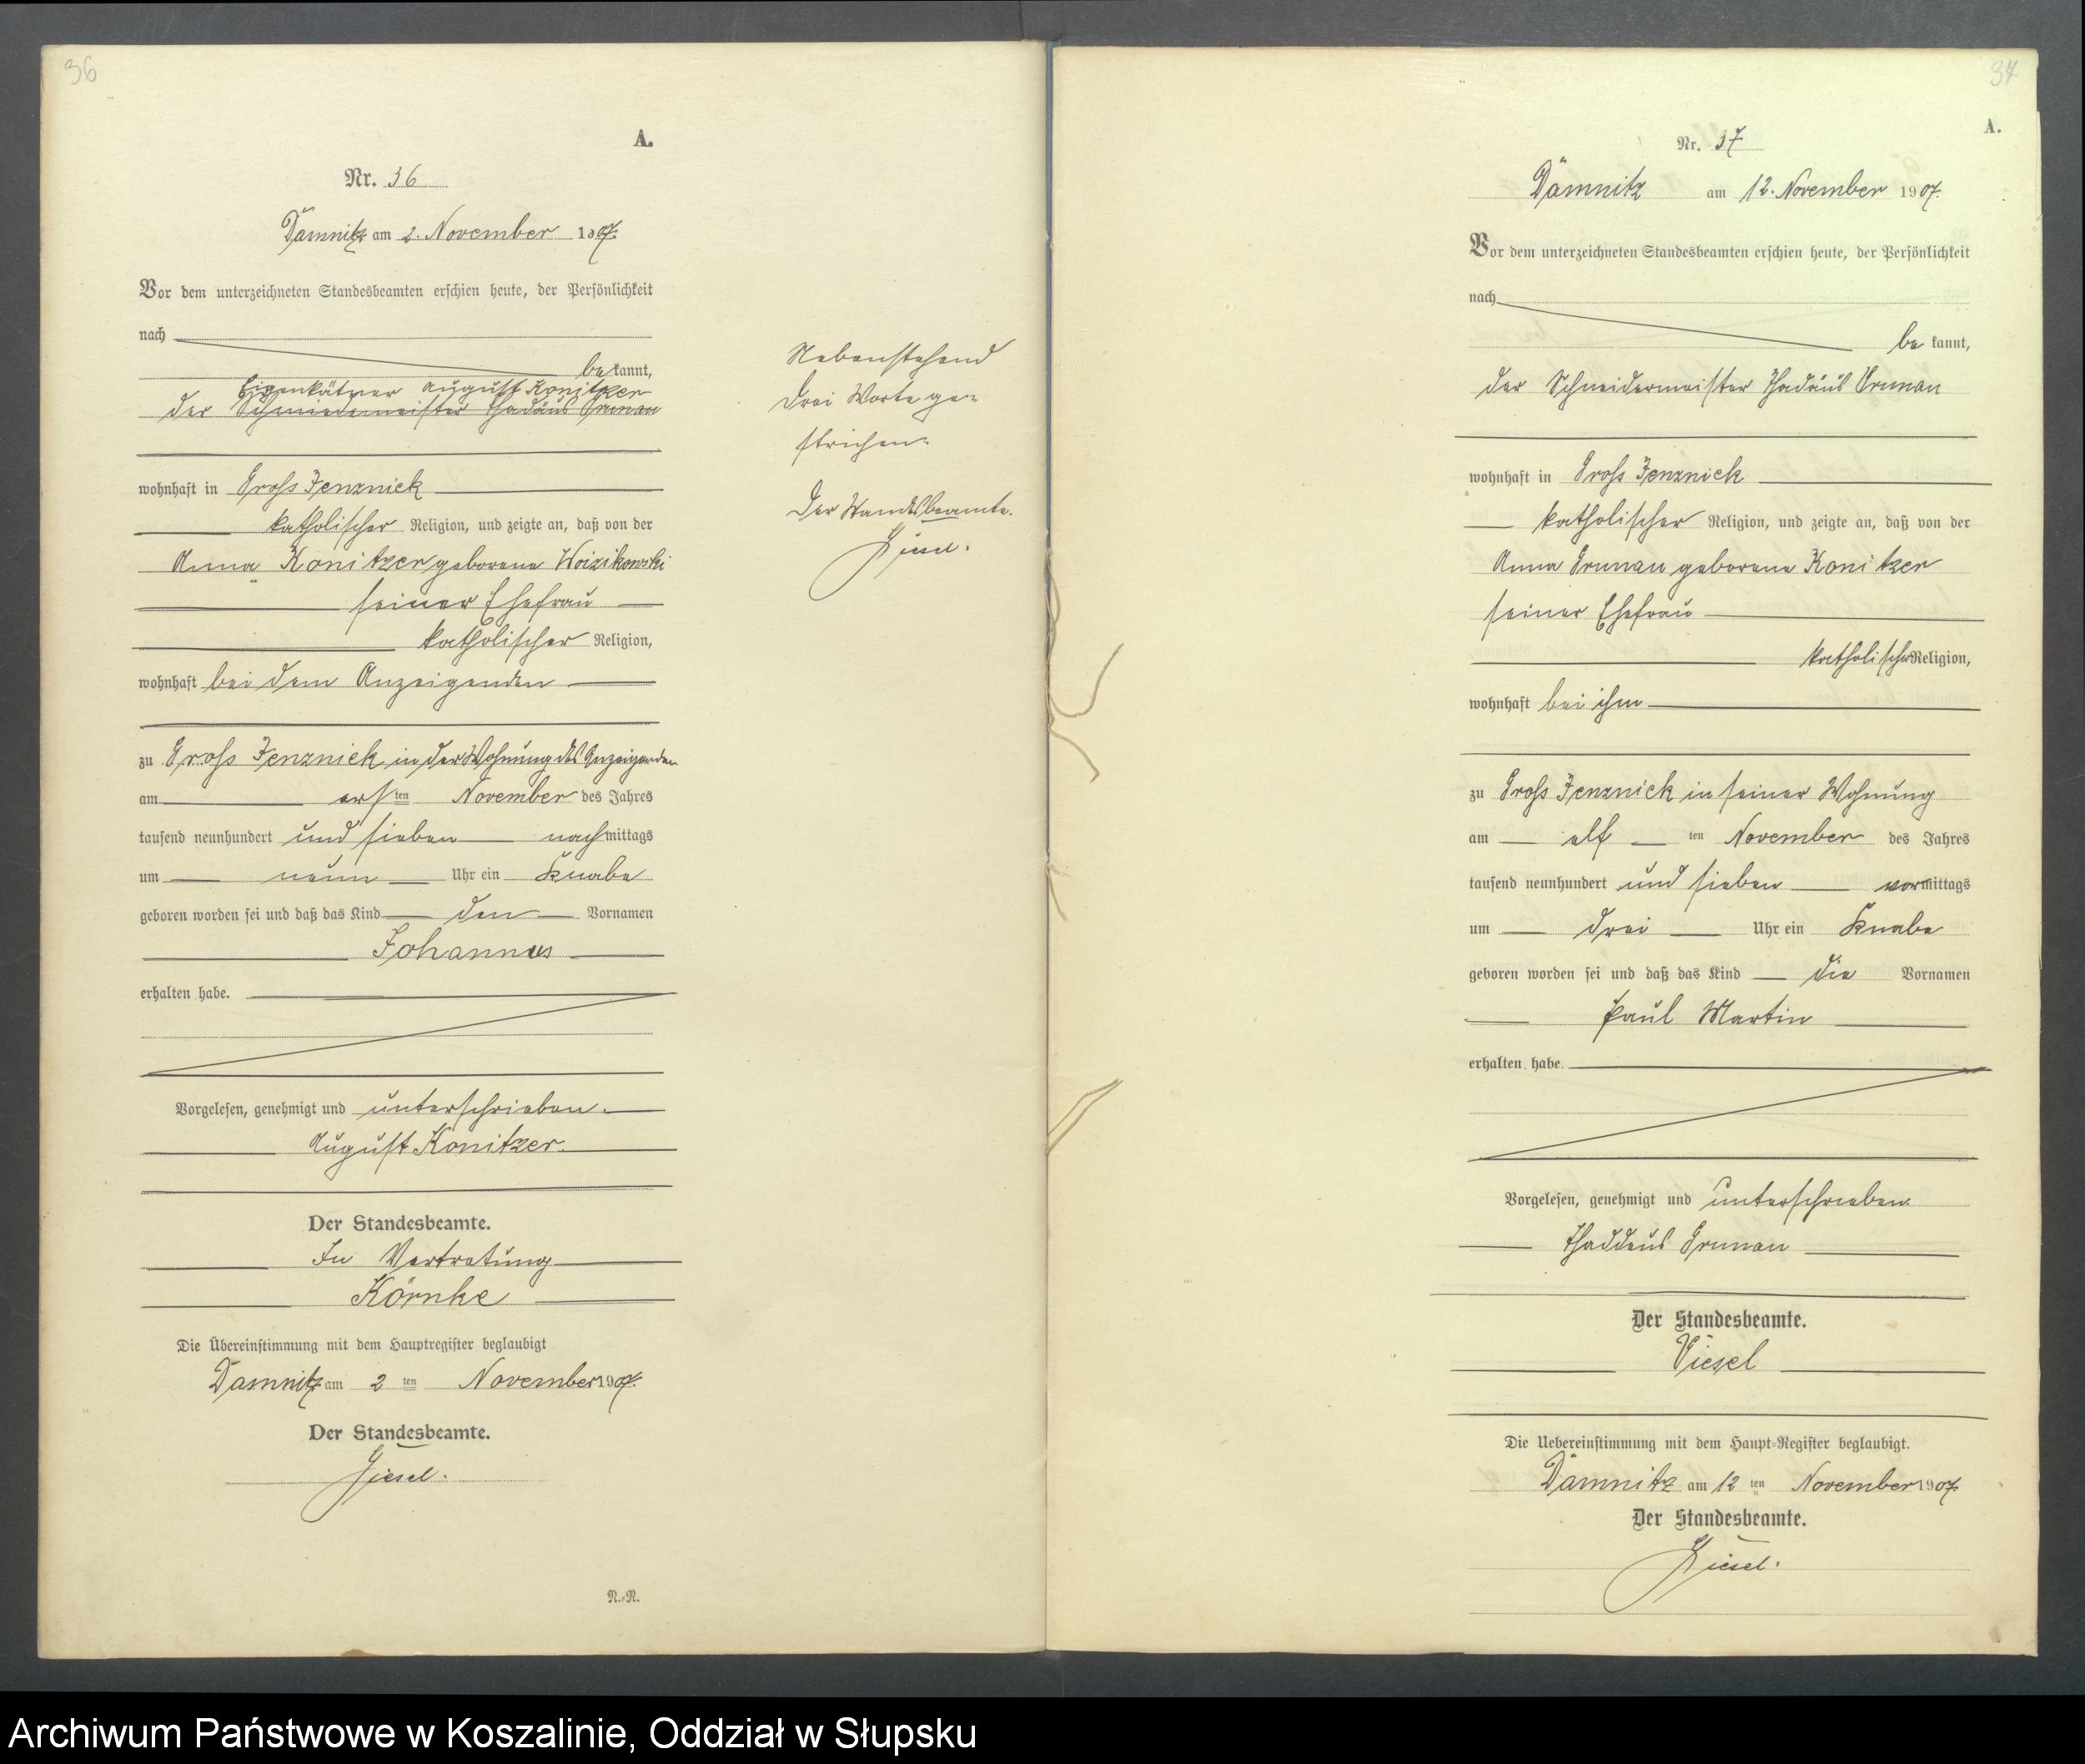 36
A.
Nr. 36
Damnitz am 2. November 1907.
Vor dem unterzeichneten Standesbeamten erschien heute, der Persönlichkeit
nach
be kannt,
Eigenkätner August Konitzer
der Schneidermeister Thadäus Grunau
wohnhaft in Gross Jenznick
katholischer Religion, und zeigte an, daß von der
Anna Konitzer geborene Woizikowski
seiner Ehefrau
katholischer Religion,
wohnhaft bei dem Anzeigenden
zu Gross Jenznick in der Wohnung des Anzeigenden
am ersten November des Jahres
tausend neunhundert und sieben nachmittags
um neun Uhr ein Knabe
geboren worden sei und daß das Kind den Vornamen
Johannes
erhalten habe.
Vorgelesen, genehmigt und unterschrieben.
August Konitzer.
Der Standesbeamte.
In Vertretung
Körnke
Die Übereinstimmung mit dem Hauptregister beglaubigt
Damnitz am 2 ten November 1907.
Der Standesbeamte.
Giesel.
N.-R.
Nebenstehend
drei Worte ge-
strichen.
Der Standesbeamte.
Giesel.
37
A.
Nr. 37
Damnitz am 12. November 1907.
Vor dem unterzeichneten Standesbeamten erschien heute, der Persönlichkeit
nach
be kannt,
der Schneidermeister Thadäus Grunau
wohnhaft in Gross Jenznick
katholischer Religion, und zeigte an, daß von der
Anna Grunau geborene Konitzer
seiner Ehefrau
katholischer Religion,
wohnhaft bei ihm
zu Gross Jenznick in seiner Wohnung
am elf ten November des Jahres
tausend neunhundert und sieben vormittags
um drei Uhr ein Knabe
geboren worden sei und daß das Kind die Vornamen
Paul Martin
erhalten habe.
Vorgelesen, genehmigt und unterschrieben
Thaddeus Grunau
Der Standesbeamte.
Giesel
Die Uebereinstimmung mit dem Haupt-Register beglaubigt.
Damnitz am 12 ten November 1907.
Der Standesbeamte.
Giesel.
Archiwum Państwowe w Koszalinie, Oddział w Słupsku